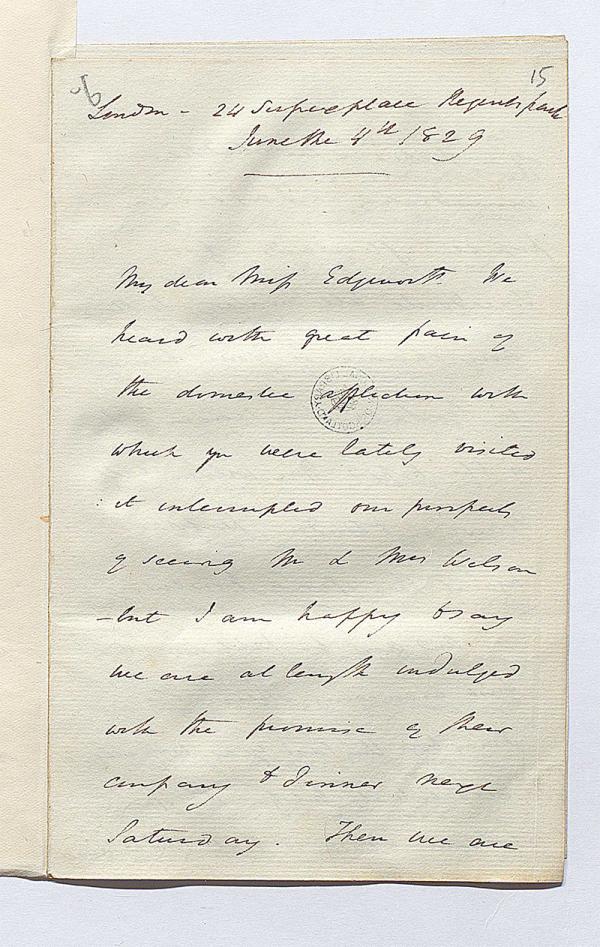 15
London - 24 Sussex place Regents park
June the 4th 1829
My dear Miss Edgeworth. We
heard with great pain of
the domestic affliction with
which you were lately visited
: it interrupted our prospects
of seeing Mr & Mrs Wilson
- but I am happy to say
we are at length indulged
with the promise of their
company to dinner next
Saturday. Then we are